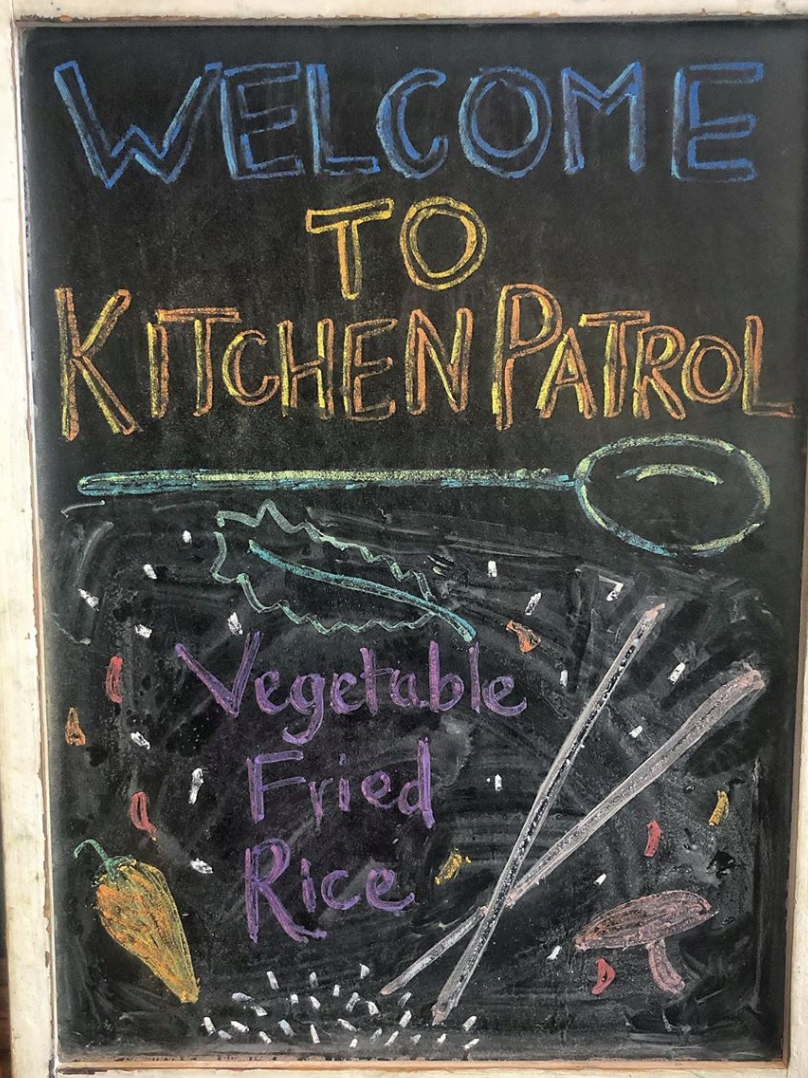 WELCOME
TO
KITCHEN PATROL
Vegetable
Fried
Rice